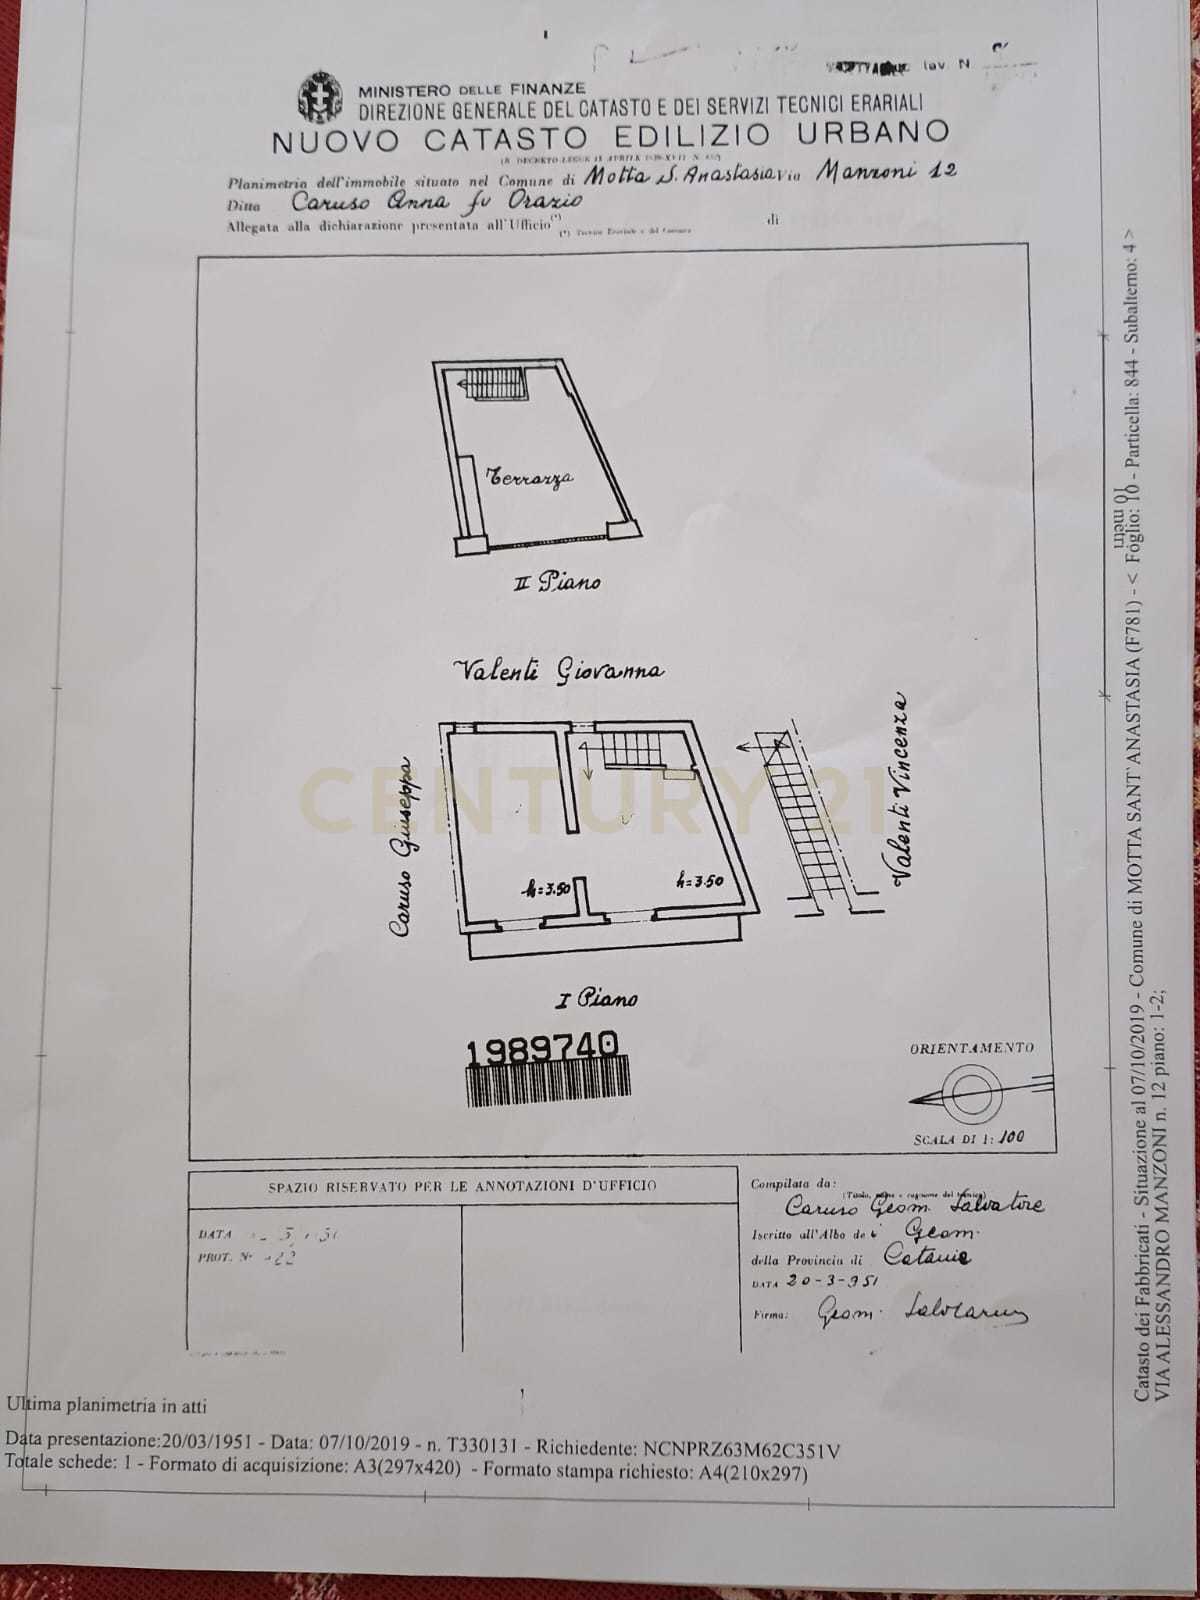 lav. N
MINISTERO DELLE FINANZE
DIREZIONE GENERALE DEL CATASTO E DEI SERVIZI TECNICI ERARIALI
NUOVO CATASTO EDILIZIO URBANO
Planimetria dell'immobile situato nel Comune di Motta S. Anastasia Via Manzoni 12
Ditta Caruso Anna fu Orazio
Allegata alla dichiarazione presentata all'Ufficio(*) di
(*) Tecnico Erariale o del Comune
Terrazza
II Piano
Valenti Giovanna
Caruso Giuseppa
Valenti Vincenza
CENTURY 21
h=3.50
h=3.50
I Piano
1989740
ORIENTAMENTO
SCALA DI 1: 100
SPAZIO RISERVATO PER LE ANNOTAZIONI D'UFFICIO
DATA
PROT. N°
Compilata da:
(Titolo, nome e cognome del tecnico)
Caruso Geom. Salvatore
Iscritto all'Albo de i Geom.
della Provincia di Catania
DATA 20-3-951
Firma: Geom.
Ultima planimetria in atti
Data presentazione:20/03/1951 - Data: 07/10/2019 - n. T330131 - Richiedente: NCNPRZ63M62C351V
Totale schede: 1 - Formato di acquisizione: A3(297x420) - Formato stampa richiesto: A4(210x297)
10 metri
Catasto dei Fabbricati - Situazione al 07/10/2019 - Comune di MOTTA SANT' ANASTASIA (F781) - < Foglio: 10 - Particella: 844 - Subalterno: 4 >
VIA ALESSANDRO MANZONI n. 12 piano: 1-2;